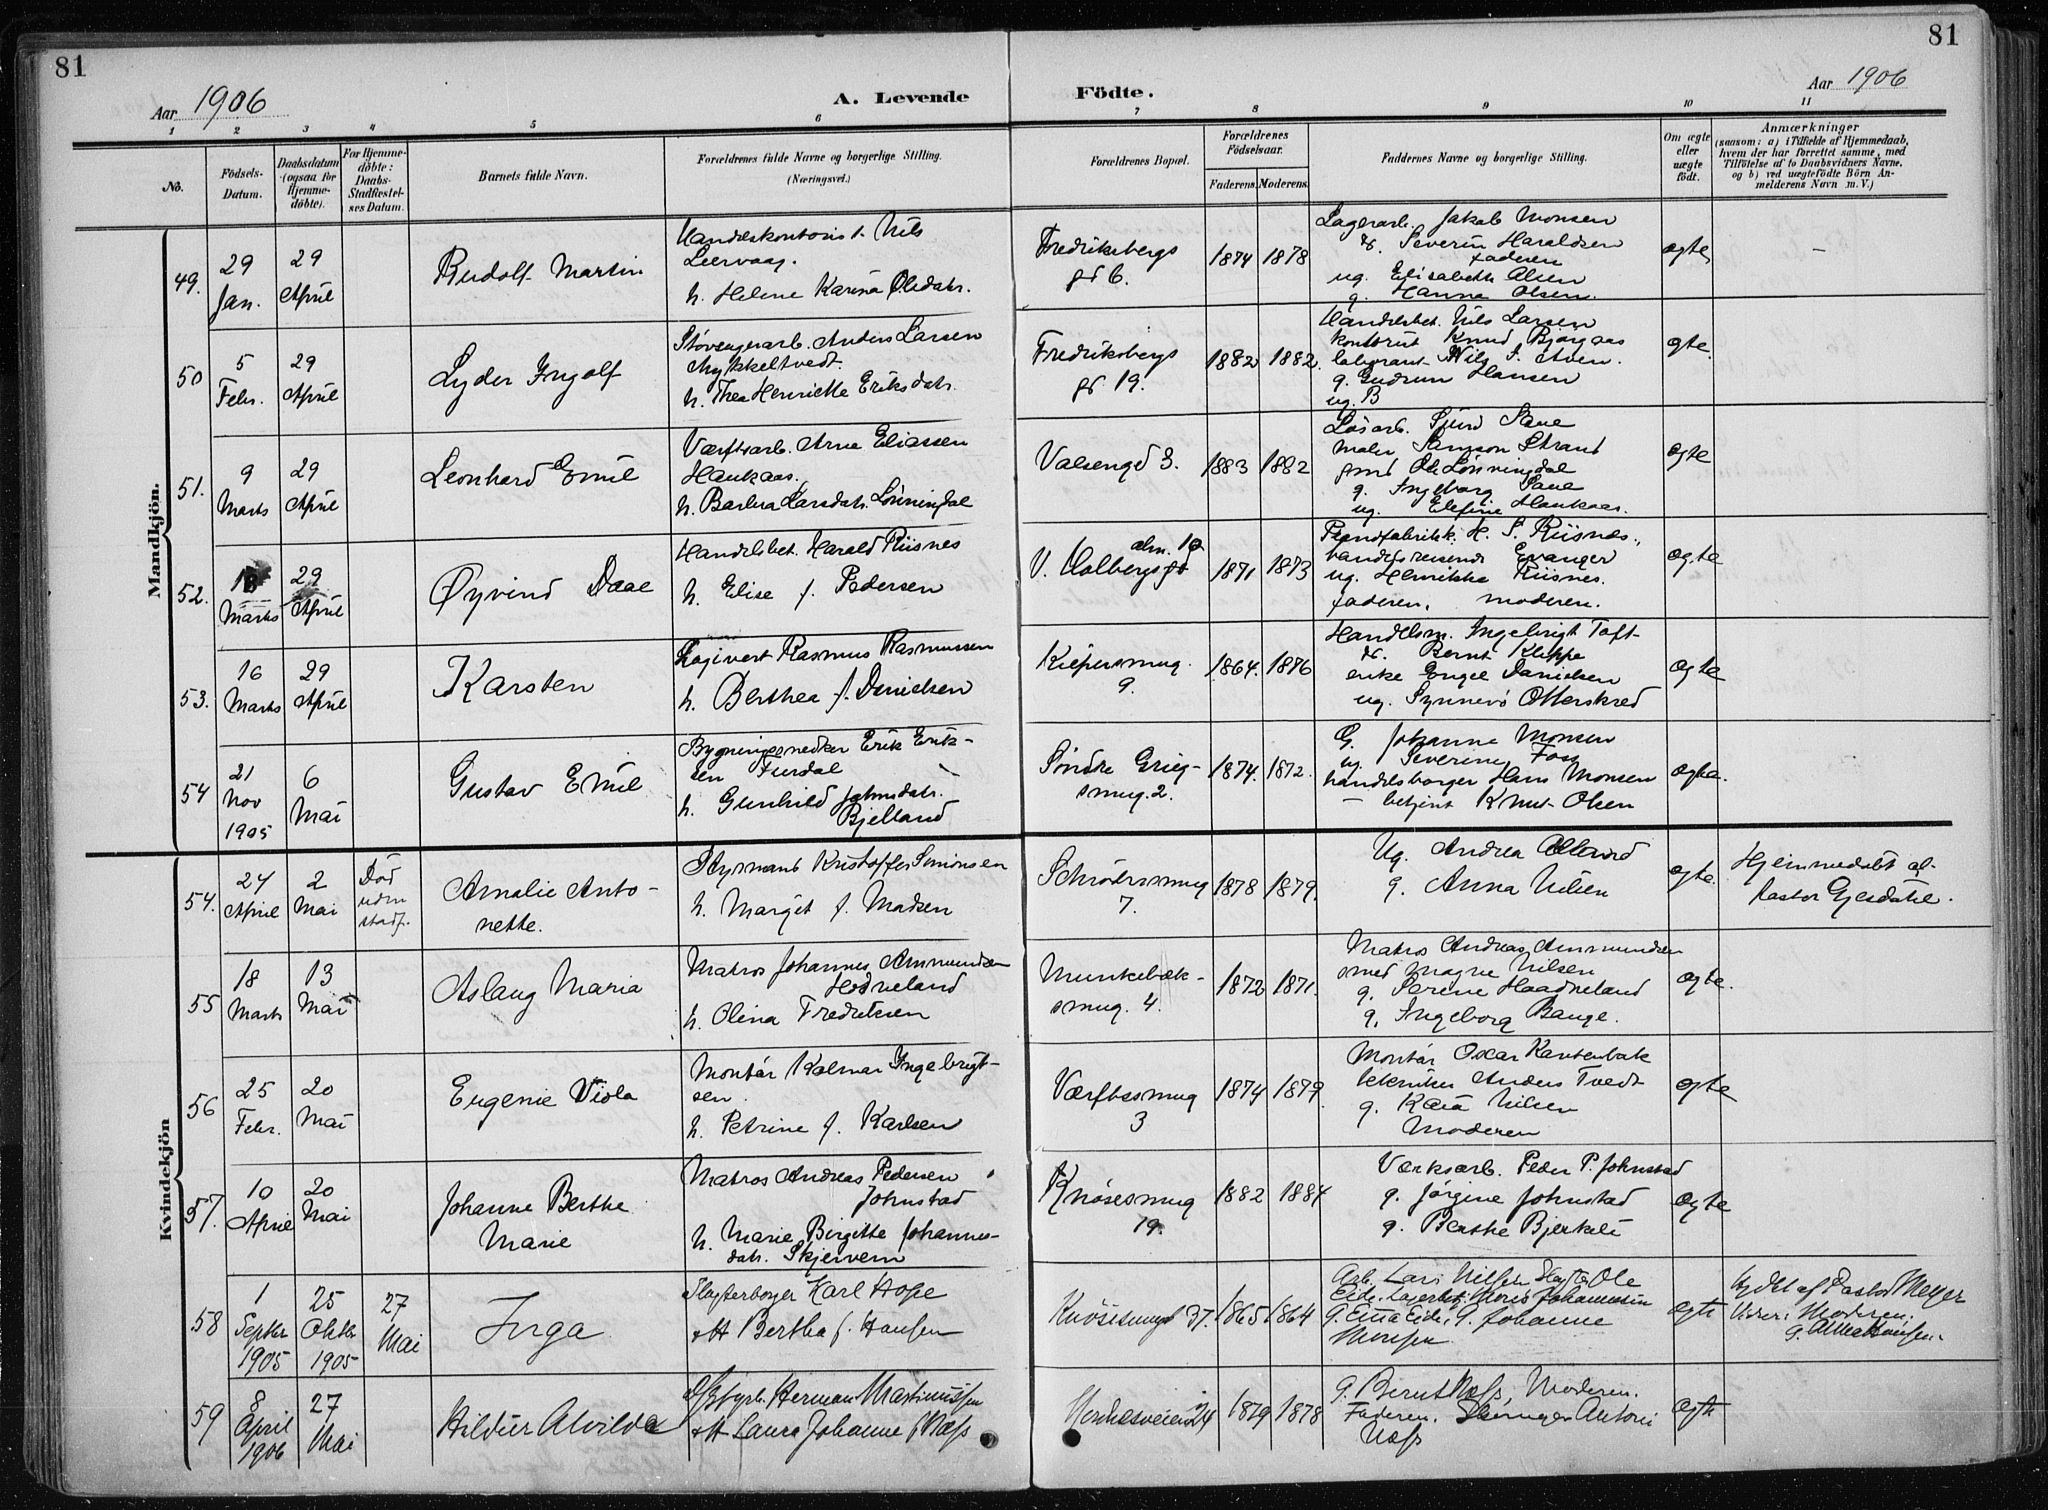 81
81
Aar 1906
A. Levende Födte.
Aar 1906
1 2 3 4 5 6 7 8 9 10 11
No.
Födsels-Datum.
Daabsdatum (ogsaa for Hjemme-döbte).
For Hjemme-döbte: Daabs-Stadfæstelses Datum.
Barnets fulde Navn.
Forældrenes fulde Navne og borgerlige Stilling. (Næringsvei.)
Forældrenes Bopæl.
Forældrenes Födselsaar.
Faderens. Moderens.
Faddernes Navne og borgerlige Stilling.
Om ægte eller uægte födt.
Anmærkninger
(saasom: a) i Tilfælde af Hjemmedaab, hvem der har forrettet samme, med Tilföielse af to Daabsvidners Navne, og b) ved uægtefödte Börn Anmelderens Navn m. V.)
Mandkjön.
49.
29 Jan.
29 April
Rudolf Martin
Handelskontorist Nils
Leervaag.
h. Helene Karina Olsdatr.
Fredriksbergs
gd 6.
1874 1878
Lagerarb. Jakob Monsen
Severin Haraldsen
faderen
ug. Elisabeth Olsen
g. Hanna Olsen.
ægte
-
50
5 Febr.
29 April
Lyder Ingolf
Støvengerarb. Anders Larsen
Mykkeltvedt.
h. Thea Henriette Eriksdatr.
Fredriksbergs
gd. 19.
1882 1882.
Handelsbet. Nils Larsen
kontorist Knud Bjørgaas
g. Gudrun Hansen
ug. B
ægte.
51.
9 Marts
29 April
Leonhard Emil
Værftsarb. Arne Eliassen
Haukaas.
h. Barbra Larsdatr. Lønningdal
Valsengd 3.
1883 1882
Løsarb. Sjurd Sane
maler Samson Strand
gmd Ole Lønningdal
g. Ingeborg Sane
ug. Elefine Haukaas.
ægte
52.
Marts
29 April
Øyvind Daae
Handelsbet. Harald Riisnes
h. Elise f. Pedersen
V. Holbergsg
alm. 10
1871 1873
H. S. Riisnes.,
handelsreisende Evanger
ug. Henrikke Riisnes.
faderen, moderen.
ægte
53.
16 Marts
29 April
Karsten
Logivert Rasmus Rasmussen
h. Berthea f. Danielsen
Kippersmug.
9.
1864. 1876
Handelsm. Ingebrigt Toft-
Bernt Kleppe
enke Engel Danielsen
ug. Synnevø Otterskred
ægte
54
21 Nov 1905
6 Mai
Gustav Emil
Bygningssnedker Erik Erik-
sen Furdal
h. Gunhild Johnsdatr.
Bjelland
Søndre Grieg-
smug. 2.
1874. 1872.
G. Johanne Monsen
ug. Severine Foss
handelsborger Hans Monsen
- betjent Knut Olsen
ægte.
Kvindekjön
54.
24 April
2 Mai
Død uden stadf.
Amalie Anto-
nette.
Styrmand Kristoffer Simonsen
h. Margit f. Madsen
Schrøderssmug
7.
1878 1879.
Ug. Andrea
g. Anna Nilsen
ægte.
Hjemmedøbt af
Pastor Gjesdahl.
55
18 Marts
13 Mai
Aslaug Maria
Matros Johannes Ammundsen
Hodneland
h. Olina Fredriksen
Munkebæk-
smug. 4.
1872 1871.
Matros Andreas Ammundsen
smed Magne Nilsen
g. Serene Haadneland
g. Ingeborg Bauge.
ægte.
56
25 Febr.
20 Mai
Eugenie Viola
Montør Kalmar Ingebrigt-
sen.
h. Petrine f. Karlsen
Værftssmug
3
1874 1879.
Montør Oscar Kantenbak
tekniker Anders Tvedt
g. Kaia Nilsen
Moderen
ægte
57.
10 April
20 Mai
Johanne Berthe
Marie
Matros Andreas Pedersen
Johnstad
h. Marie Birgitte Johannes-
datr. Skjervem
Knøsesmug
19.
1882 1884
Værksarb. Peder P. Johnstad
g. Jørgine Johnstad
g. Berthe Bjerkeli
ægte
58
1 Septbr 1905
25 Oktbr 1905
27 Mai
Inga
Slagterborger Karl Hope
og H Bertha f. Hansen
Knøsesmug 37.
1865 1864
Arb. Lars Nilsen Slagter Ole
Eide. Lagerbetj. Mons Johannesen
G. Emma Eide, G. Johanne
Monsen
ægte
Døbt af Pastor Meyer
Vidner: Moderen.
59
8 April 1906
27 Mai
Hildur Alvilde
Herman Martinussen
og H Laura Johanne f. Næss
24
1879 1878
G. Bernt Næss, Moderen.
Faderen. Antoni
Næss
ægte